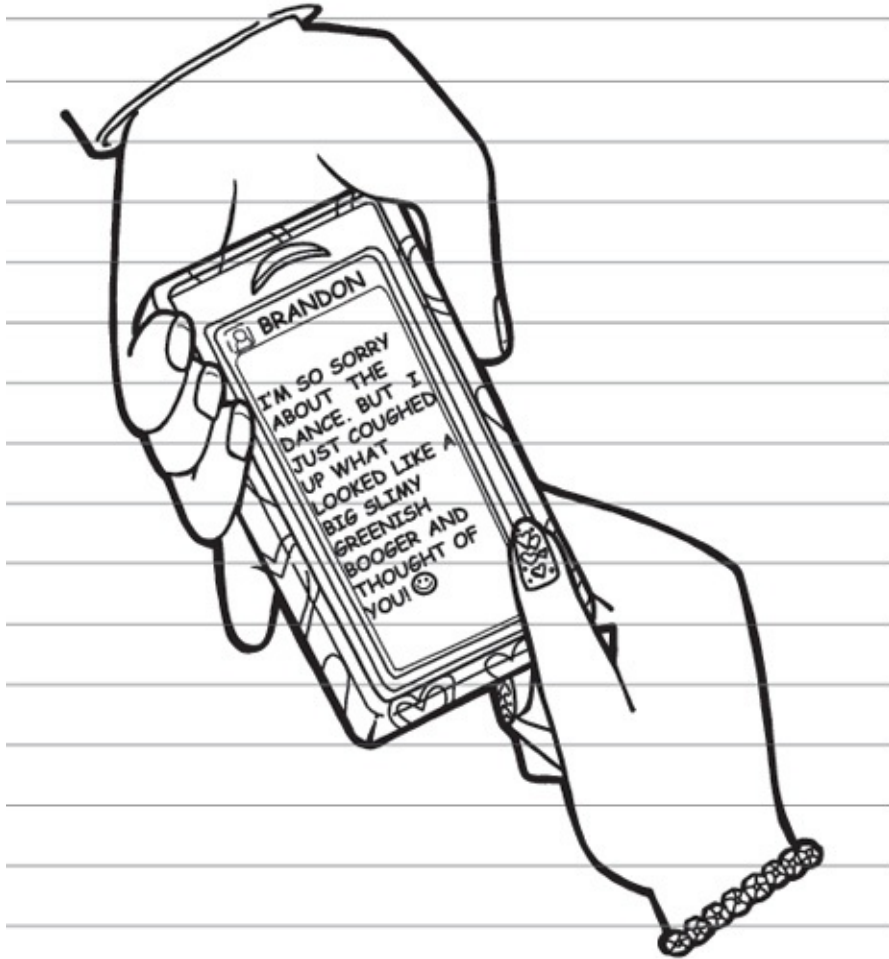 BRANDON
I'M SO SORRY
ABOUT THE
DANCE. BUT I
JUST COUGHED
UP WHAT
LOOKED LIKE A
BIG SLIMY
GREENISH
BOOGER AND
THOUGHT OF
YOU! ☺